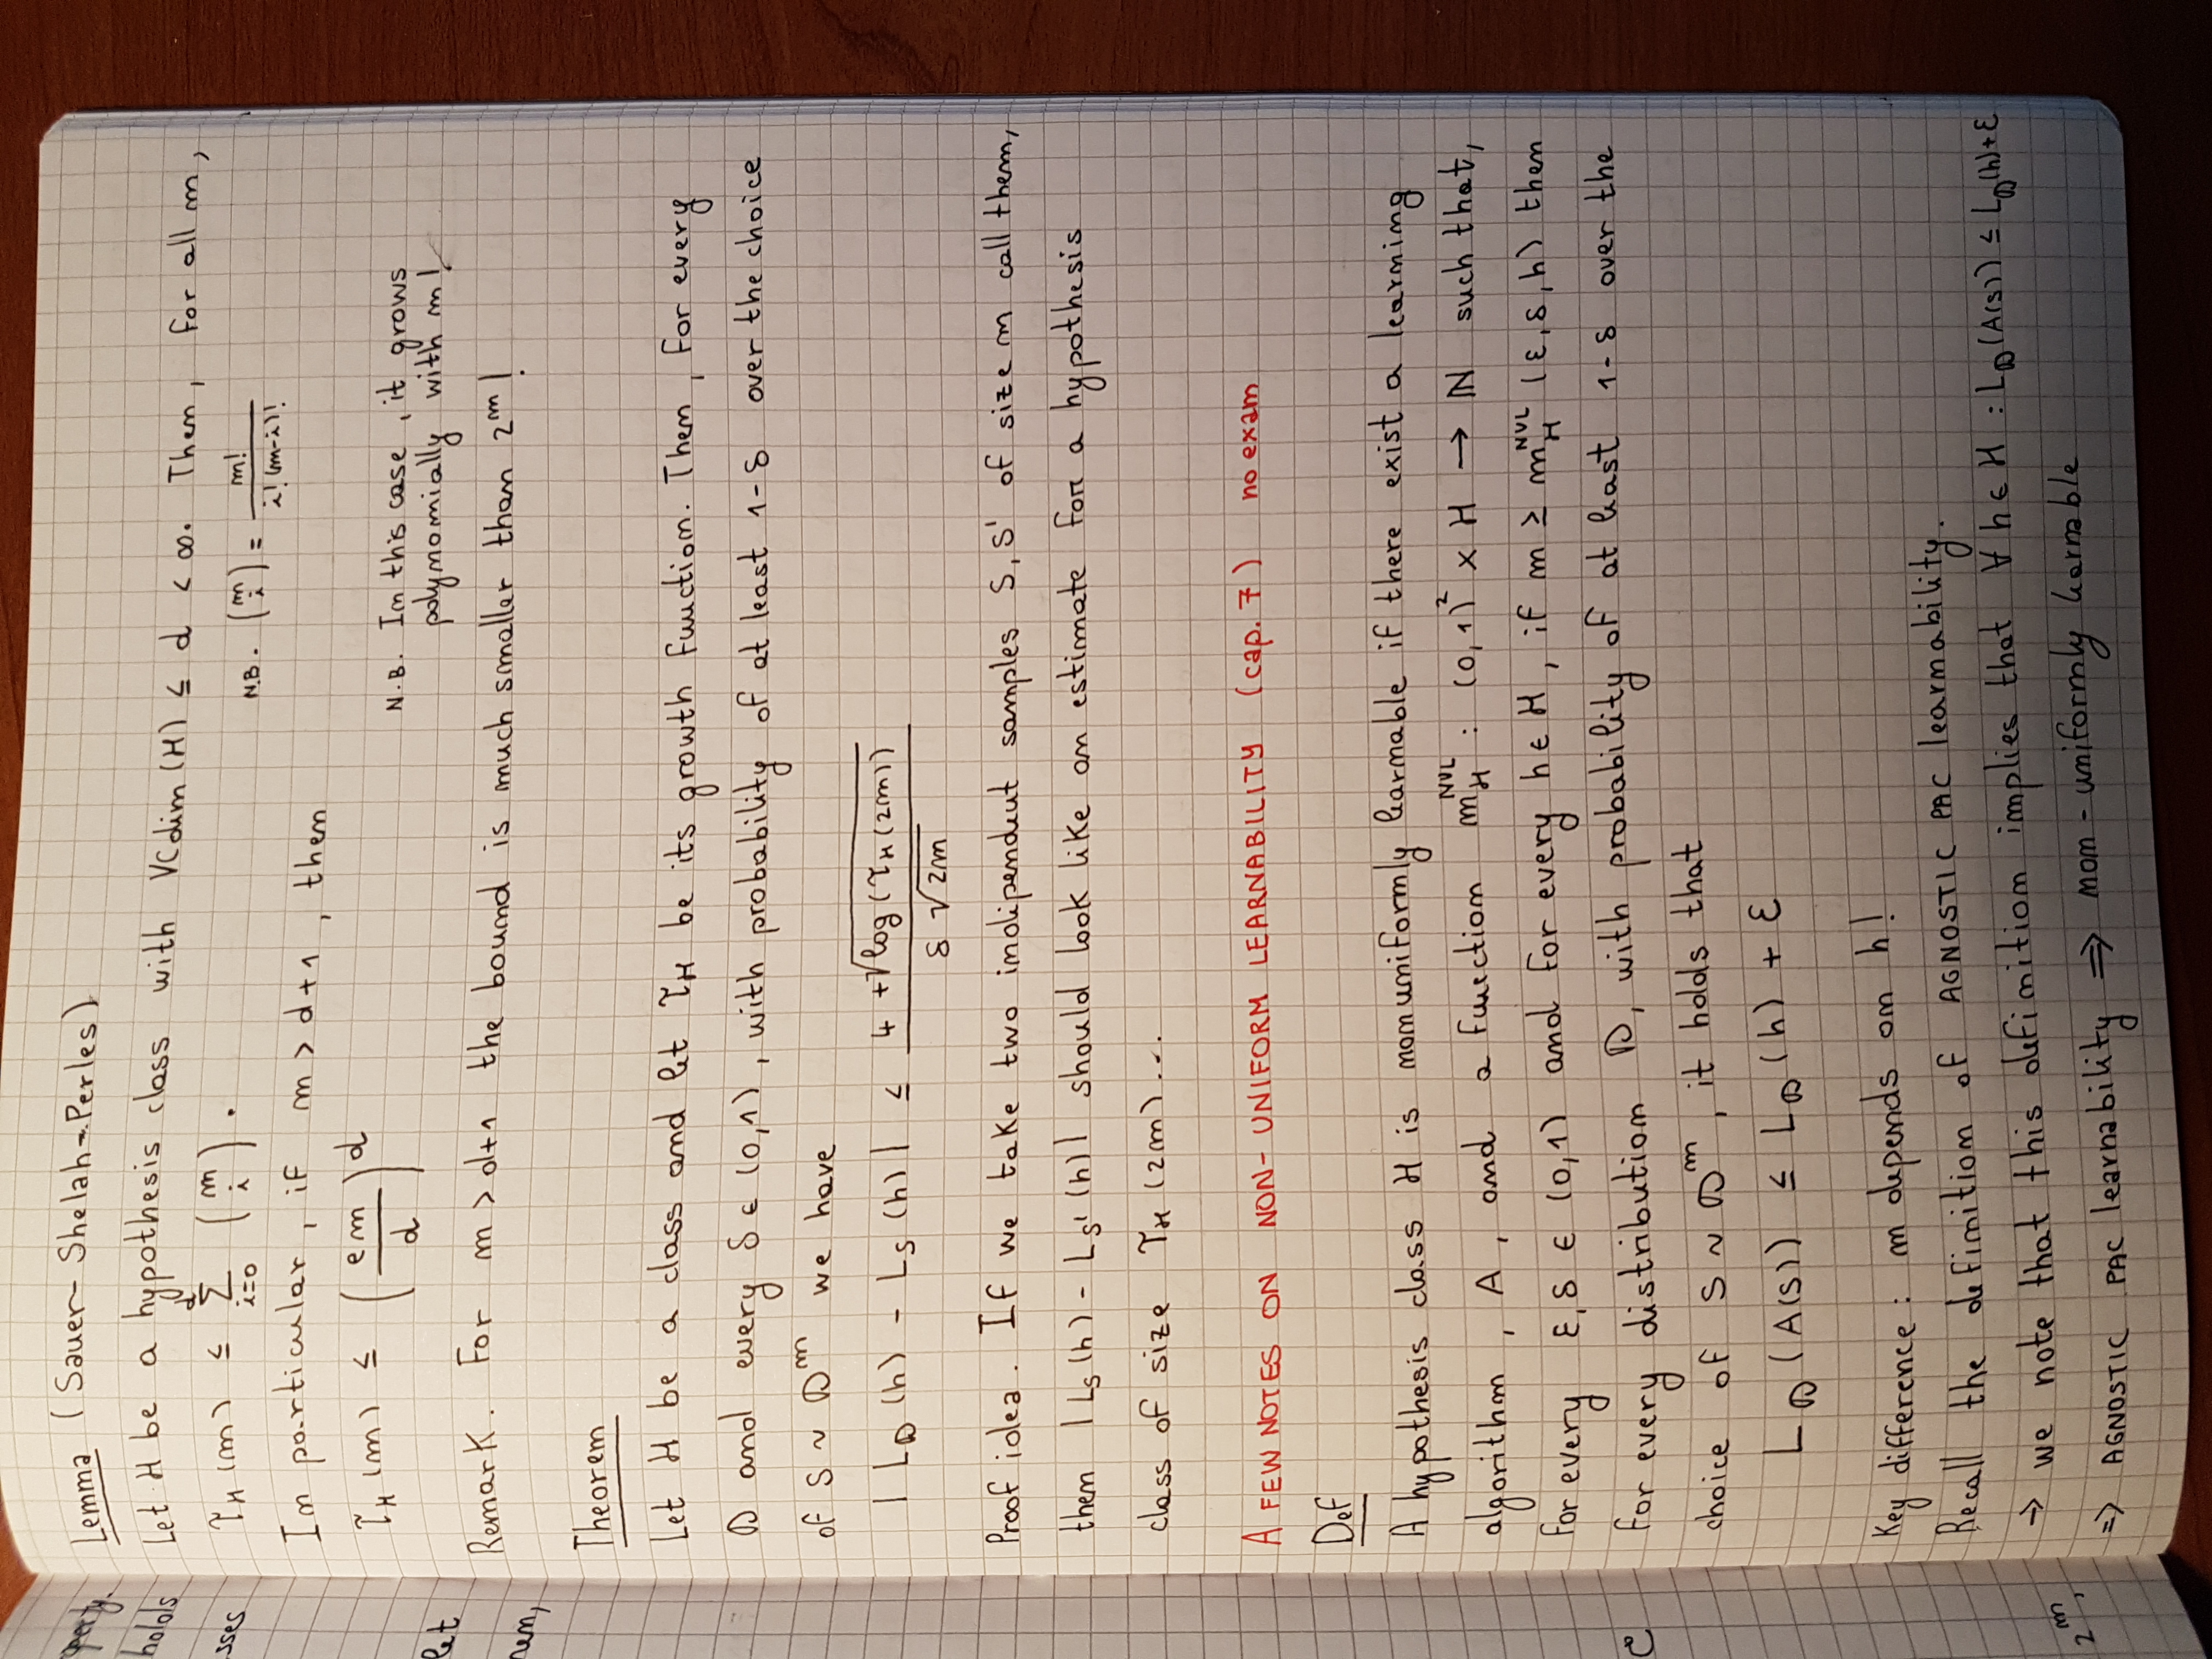 operty.
holds
sses
let
rem,
e
2^m,
Lemma (Sauer-Shelah-Perles)
Let H be a hypothesis class with VCdim(H) ≤ d < ∞. Then, for all m,
τ_H(m) ≤ Σ_{i=0}^{d} (m i). N.B. (m i) = m! / i!(m-i)!
In particular, if m > d+1, then
τ_H(m) ≤ (em/d)^d
N.B. In this case, it grows
polynomially with m!
Remark. For m > d+1 the bound is much smaller than 2^m!
Theorem
Let H be a class and let τ_H be its growth function. Then, for every
D and every δ ∈ (0,1), with probability of at least 1-δ over the choice
of S ~ D^m we have
|L_D(h) - L_S(h)| ≤ (4 + √log(τ_H(2m))) / (δ √2m)
Proof idea. If we take two indipendent samples S, S' of size m call them,
then |L_S(h) - L_S'(h)| should look like an estimate for a hypothesis
class of size τ_H(2m)...
A FEW NOTES ON NON-UNIFORM LEARNABILITY (cap. 7) no exam
Def
A hypothesis class H is nonuniformly learnable if there exist a learning
algorithm, A, and a function m_H^NUL : (0,1)^2 × H → ℕ such that,
for every ε, δ ∈ (0,1) and for every h ∈ H, if m ≥ m_H^NUL (ε, δ, h) then
for every distribution D, with probability of at least 1-δ over the
choice of S ~ D^m, it holds that
L_D(A(S)) ≤ L_D(h) + ε
Key difference: m depends on h!
Recall the definition of AGNOSTIC PAC learnability.
→ we note that this definition implies that ∀ h ∈ H : L_D(A(S)) ≤ L_D(h) + ε
⇒ AGNOSTIC PAC learnability ⇒ non-uniformly learnable